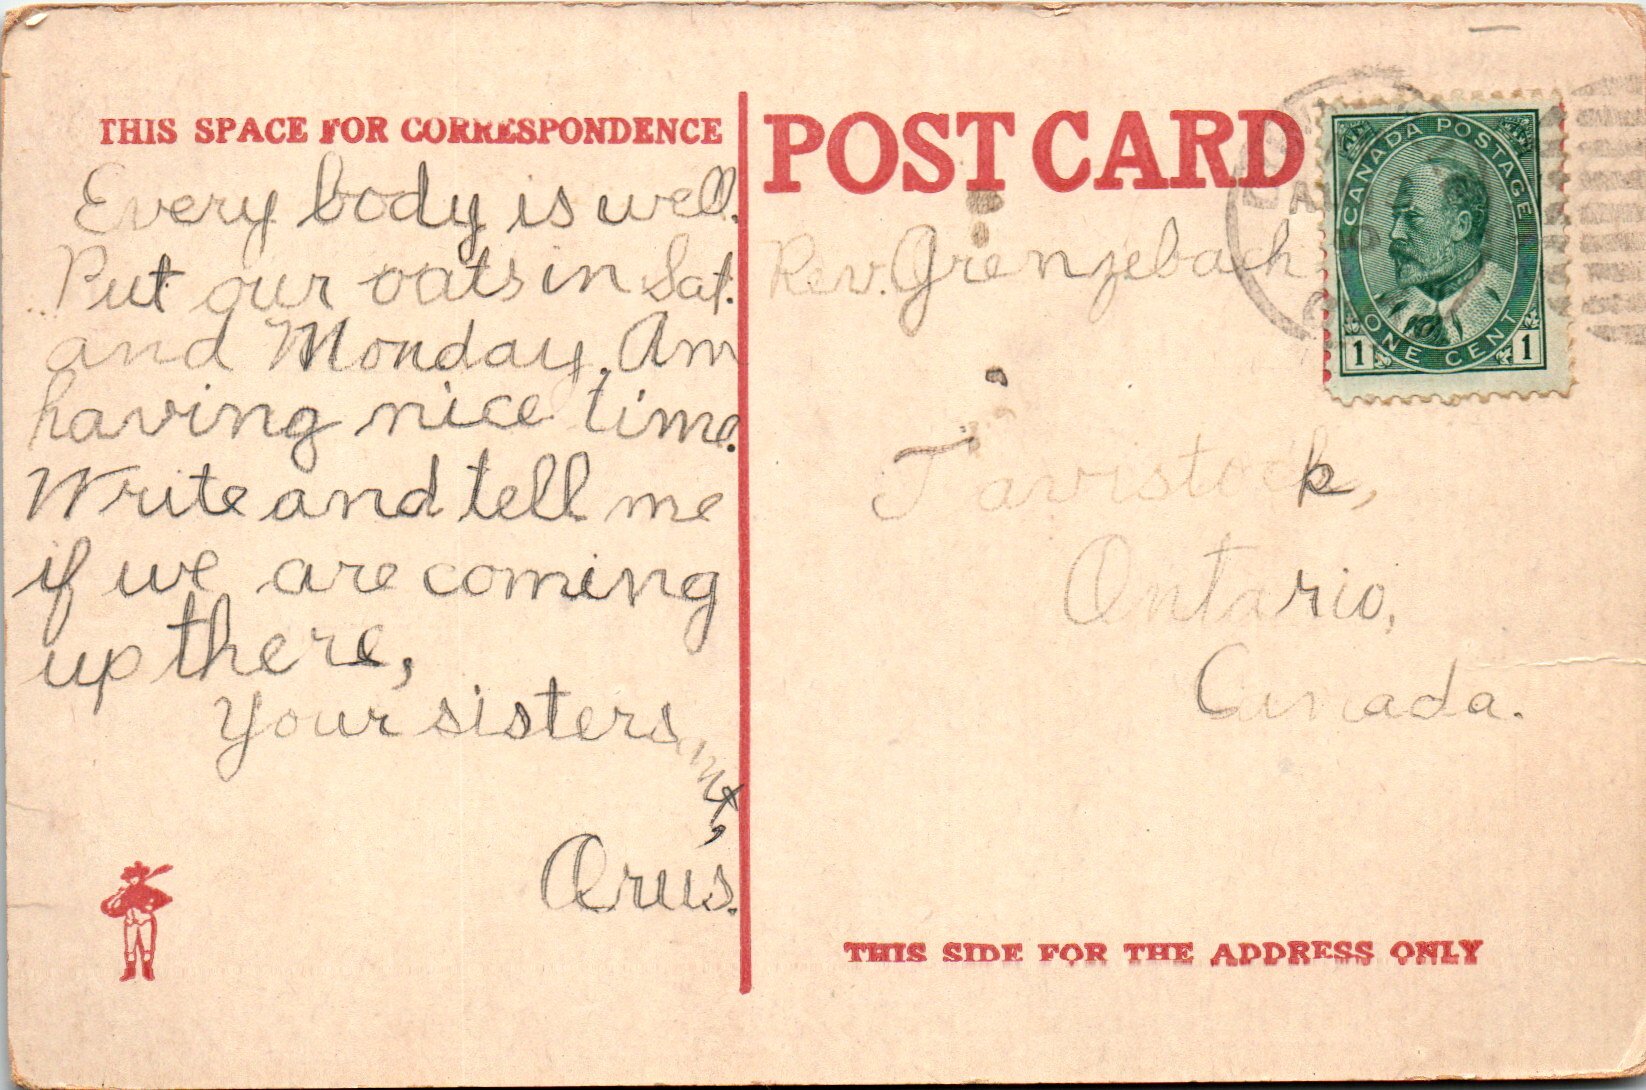 THIS SPACE FOR CORRESPONDENCE
Every body is well.
Put our oats in Sat.
and Monday. Am
having nice time.
Write and tell me
if we are coming
up there,
Your sisters
Arus.
POST CARD
CANADA POSTAGE
ONE CENT
1 1
Rev. Grenzebach
Tavistock,
Ontario,
Canada.
THIS SIDE FOR THE ADDRESS ONLY